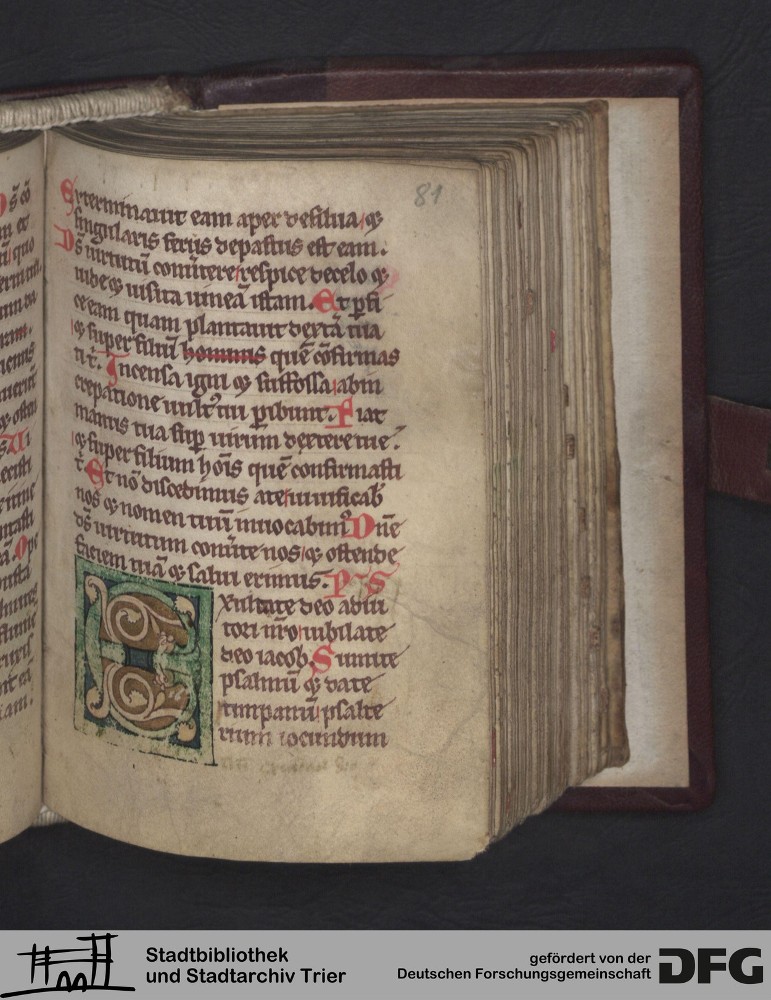 81
Exterminauit eam aper desilua / ⁊
singularis ferus depastus est eam.
Ds̄ uirtutū conūtere / respice decelo ⁊
uide ⁊ uisita uineā istam. Et ꝑfi
ce eam quam plantauit dextā tua
/ ⁊ super filiū hominis quē cōfirmas
ti t̄. Incensa igni ⁊ suffossa / abin
crepatione uult᷒ tui ꝑibunt. Fiat
manus tua suꝑ uirum dextere tue.
/ ⁊ super filium hōis quē confirmasti
t̄. Et nō discedimus ate / uiuificab
nos ⁊ nomen tuū inuocabim᷒ Dn̄e
ds̄ uirtutum conūte nos / ⁊ ostende
faciem tuā ⁊ salui erimus. PS
Exultate deo adiu
tori nr̄o / iubilate
deo iacob. Sumite
psalmū ⁊ date
timpanū / psalte
rium iocundum
Stadtbibliothek
und Stadtarchiv Trier
gefördert von der
Deutschen Forschungsgemeinschaft
DFG